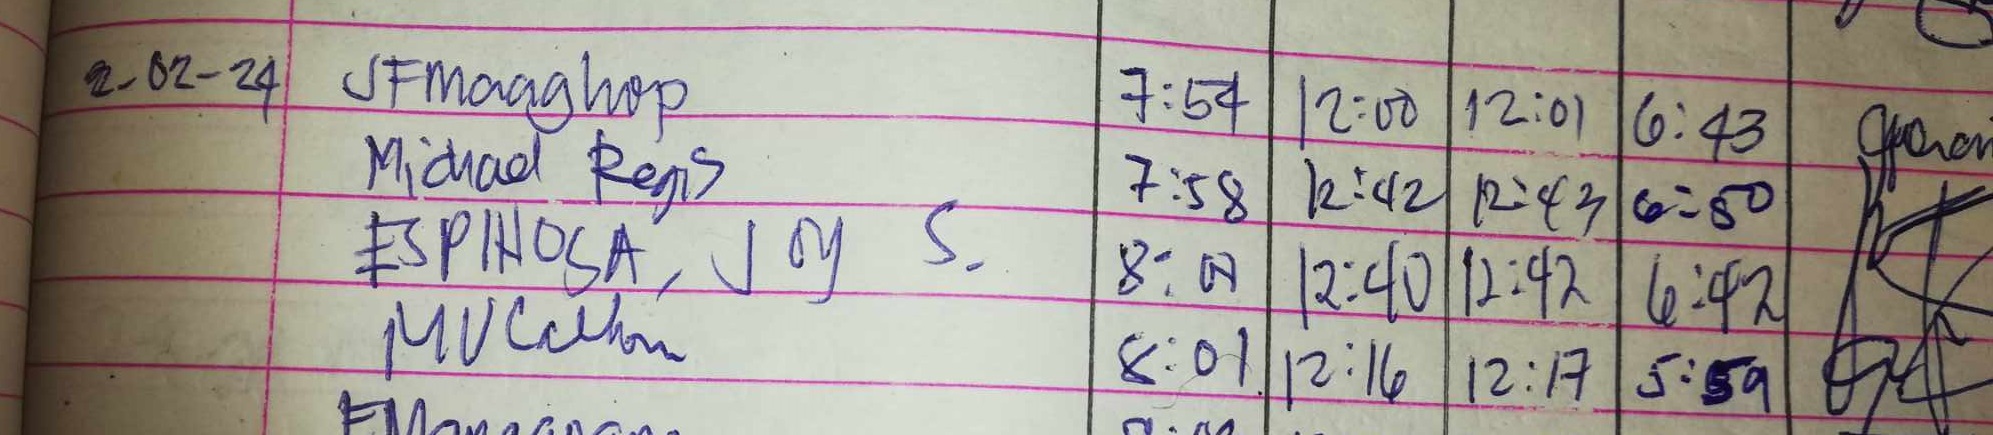 2-02-24 JFMaaghop 7:54 12:00 12:01 6:43
Michael Regis 7:58 12:42 12:43 6:50
ESPINOSA, JOY S. 8:01 12:40 12:42 6:42
8:01 12:16 12:17 5:59